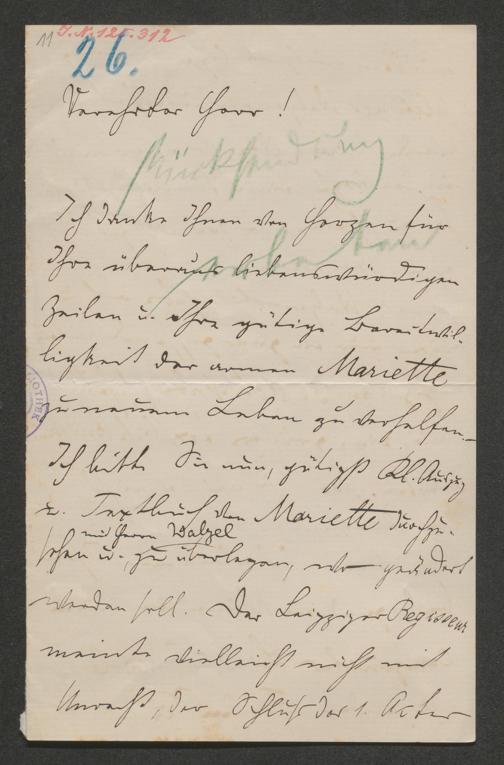 11
I.N. 125.312
26.
Verehrter Herr!
Rücksendung
erbeten
Ich danke Ihnen von Herzen für
Ihre überaus liebenswürdigen
Zeilen u. Ihre gütige Bereitwil-
ligkeit der armen Mariette
zu neuem Leben zu verhelfen.–
Ich bitte Sie nun, gütigst Kl. Auszug
u. Textbuch von Mariette durchzu-
mit Herrn Walzel
sehen u. zu überlegen, wo geändert
werden soll. Der Leipziger Regisseur
meinte vielleicht nicht mit
Unrecht, der Schluß des 1. Actes